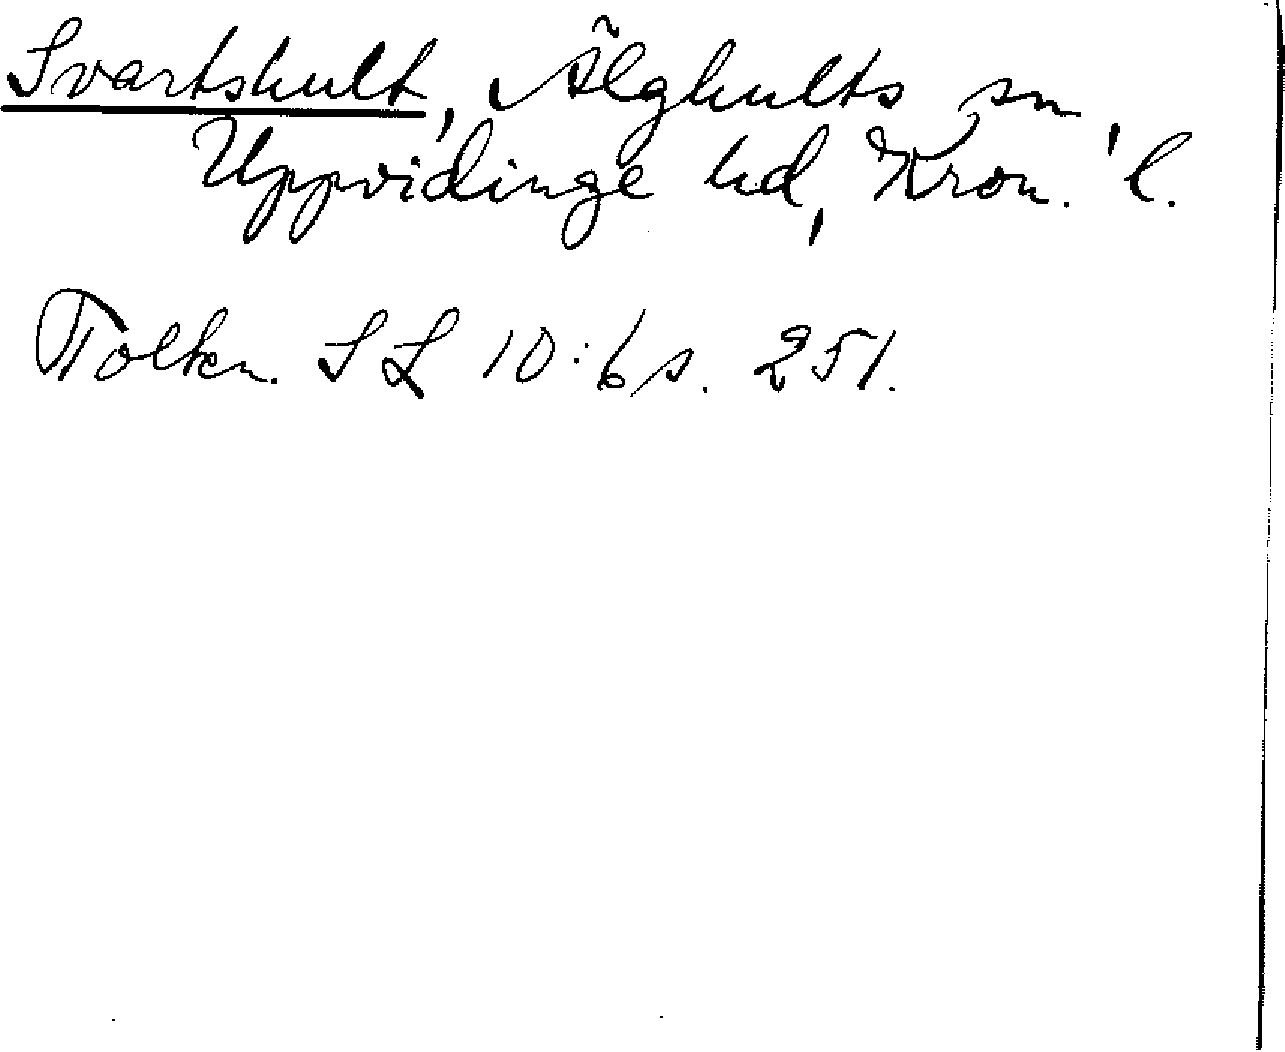 Svartshult, Älghults sn,
Uppvidinge hd, Kron. l.
Tolkn. SL 10:6 s. 251.